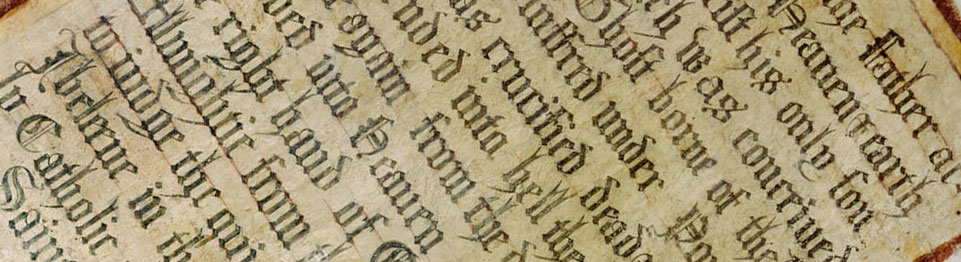 Father al
Heauen & earth
ist his only son
ch was conceiued
Ghost borne of the
suffred under Po
as crucified dead
nded into hell the
again from the d
ded into Heauen
right hand of
Almightie from th
to iudge the qui
I beleeue in th
Catholic
Sain